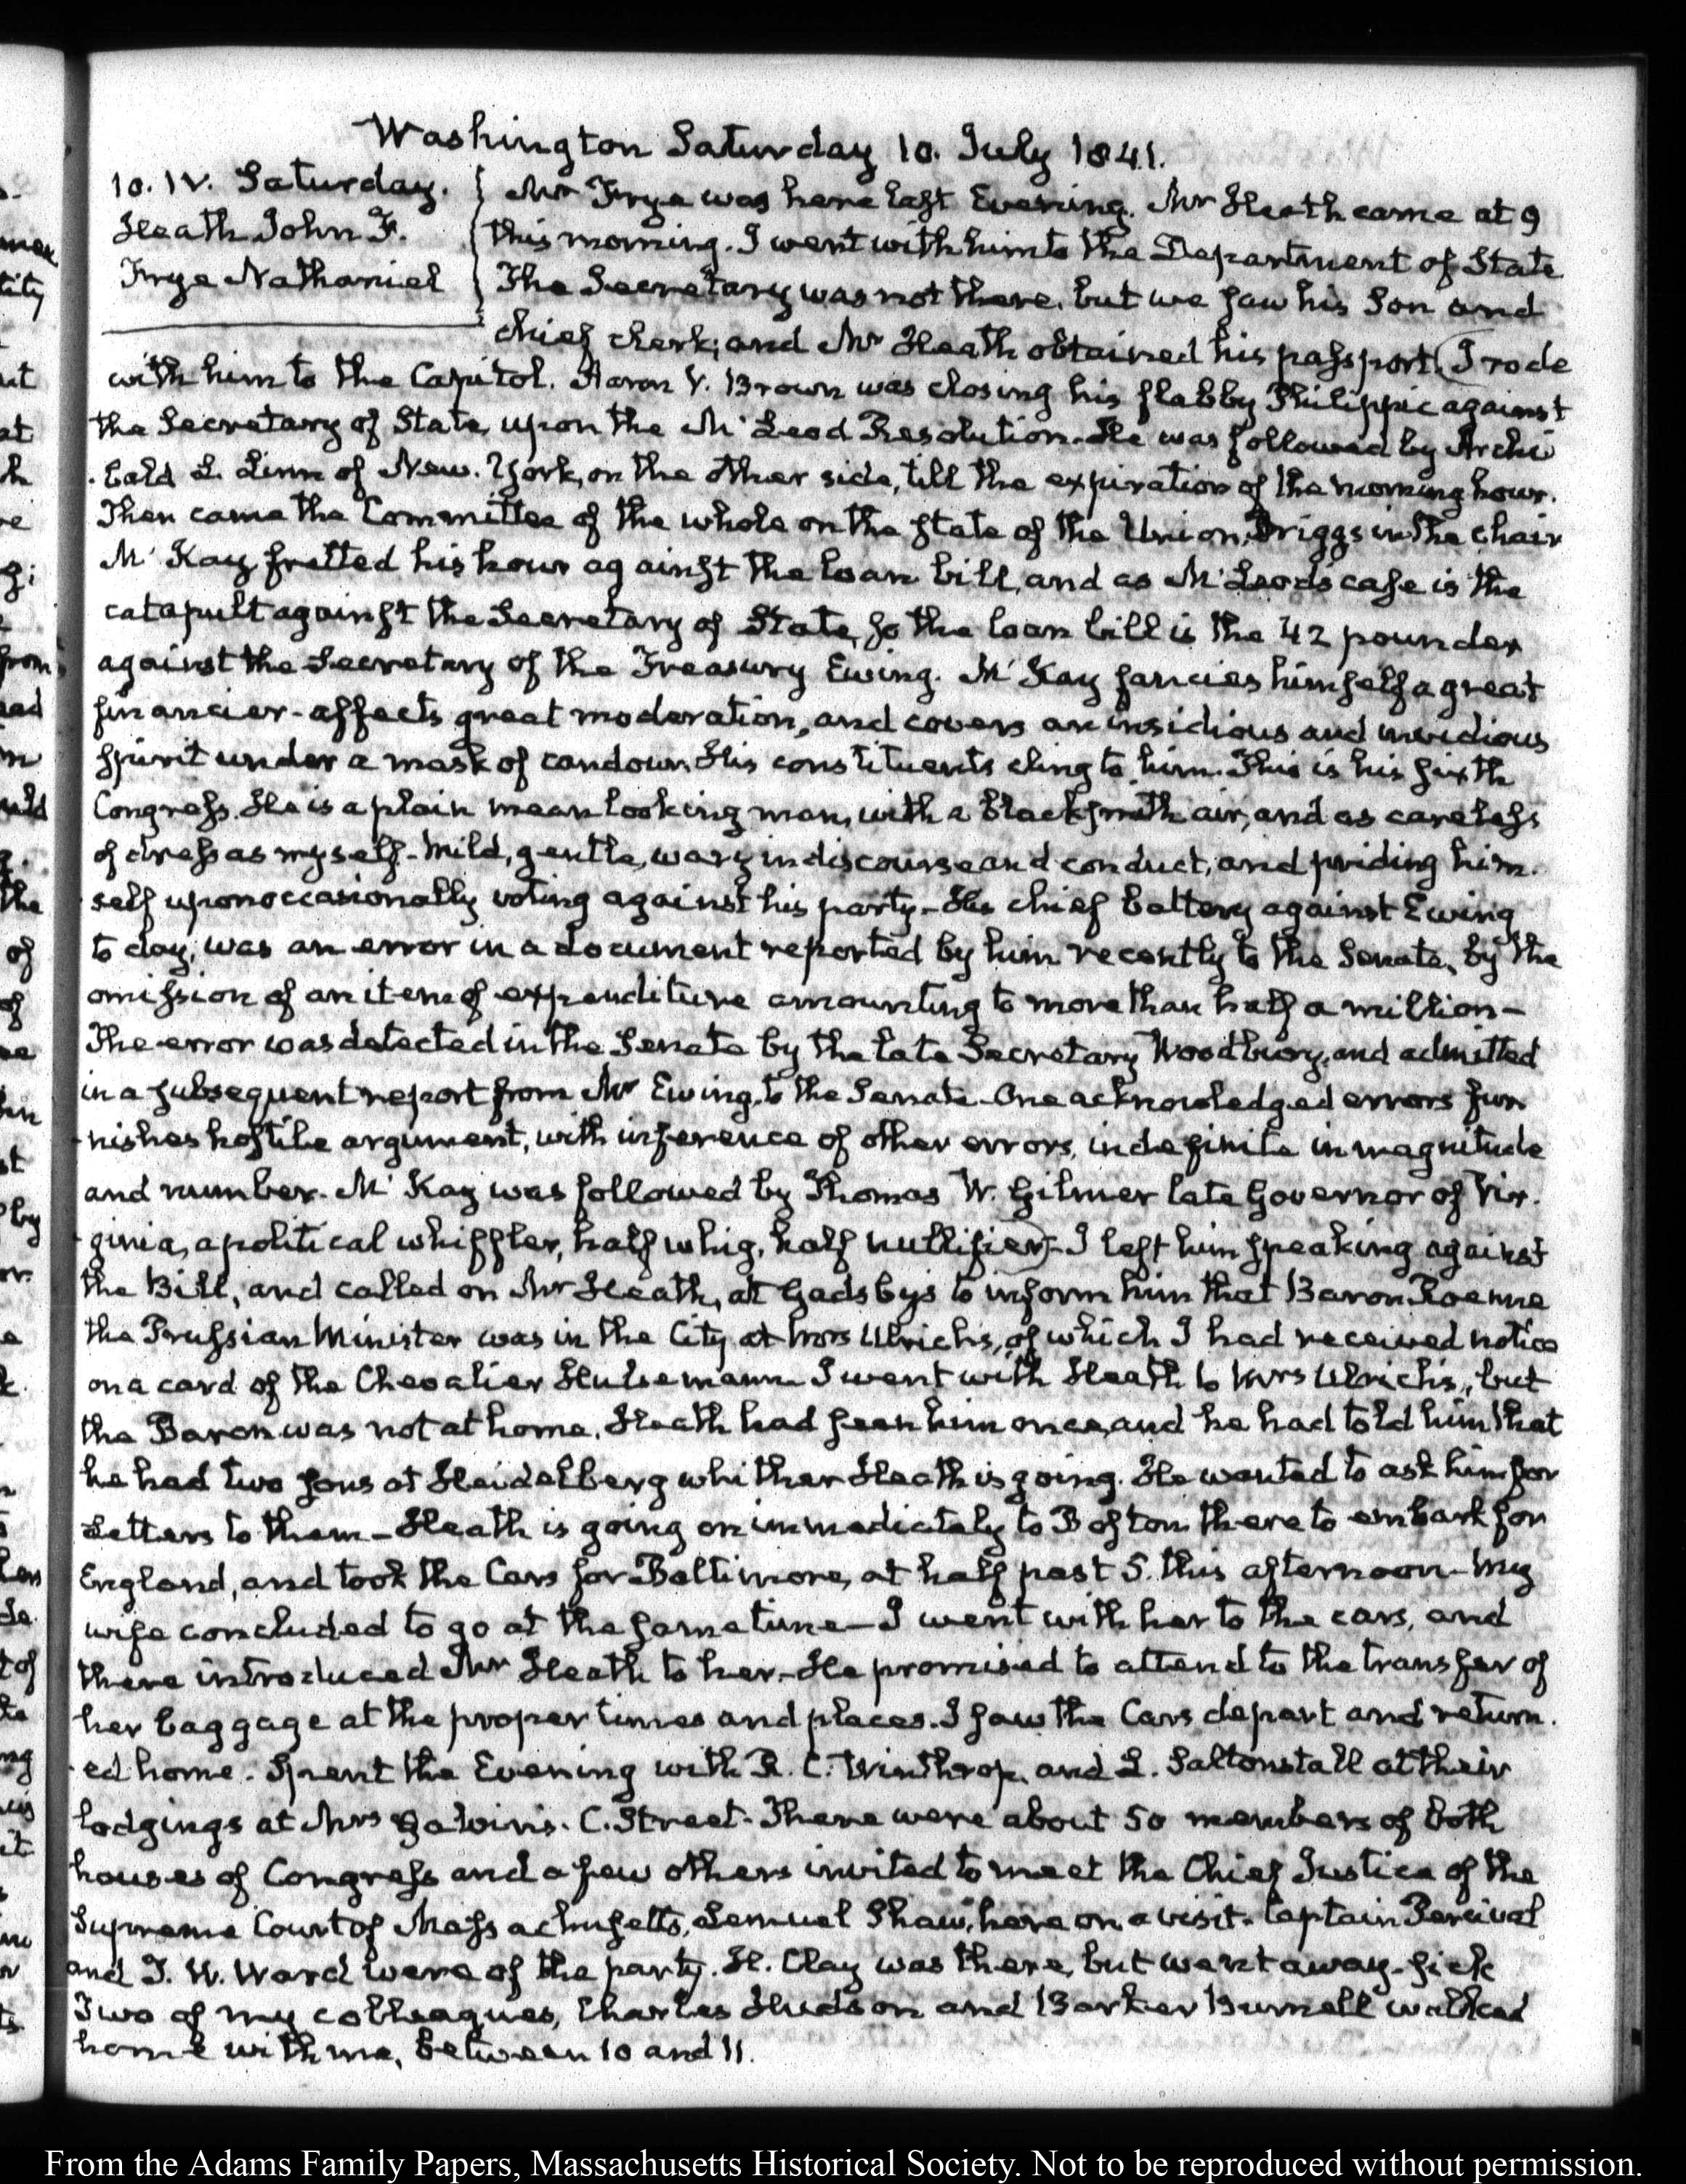 Washington Saturday 10. July 1841.
10. IV. Saturday.
Heath John F.
Frye Nathaniel
Mr Frye was here last Evening. Mr Heath came at 9
this morning. I went with him to the Department of State
The Secretary was not there, but we saw his Son and
chief clerk; and Mr Heath obtained his passport. (I rode
with him to the Capitol. Aaron V. Brown was closing his flabby Philippic against
the Secretary of State, upon the McLeod Resolution. He was followed by Archi
-bald L. Linn of New-York, on the other side, till the expiration of the morning hour.
Then came the Committee of the whole on the state of the Union, Briggs in the chair
McKay fretted his hour against the loan bill, and as McLeod's case is the
catapult against the Secretary of State, so the loan bill is the 42 pounder
against the Secretary of the Treasury Ewing. McKay fancies himself a great
financier - affects great moderation, and covers an insidious and invidious
spirit under a mask of candour. His constituents cling to him. This is his sixth
Congress. He is a plain mean looking man, with a blacksmith air, and as careless
of dress as myself - Mild, gentle, wary in discourse and conduct, and priding him-
self upon occasionally voting against his party - His chief battery against Ewing
to day, was an error in a document reported by him recently to the Senate, by the
omission of an item of expenditure amounting to more than half a million -
The error was detected in the Senate by the late Secretary Woodbury, and admitted
in a subsequent report from Mr Ewing, to the Senate - One acknowledged errors fur
-nishes hostile argument, with inference of other errors, indefinite in magnitude
and number. McKay was followed by Thomas W. Gilmer late Governor of Vir-
-ginia, a political whiffler, half whig, half nullifier) - I left him speaking against
the Bill, and called on Mr Heath, at Gadsby's to inform him that Baron Roenne
the Prussian Minister was in the City at Mrs Ulrich's, of which I had received notice
on a card of the Chevalier Hulsemann. I went with Heath to Mrs Ulrich's, but
the Baron was not at home. Heath had seen him once, and he had told him that
he had two sons at Heidelberg whither Heath is going. He wanted to ask him for
Letters to them - Heath is going on immediately to Boston there to embark for
England, and took the Cars for Baltimore, at half past 5. this afternoon - My
wife concluded to go at the same time - I went with her to the cars, and
there introduced Mr Heath to her - He promised to attend to the transfer of
her baggage at the proper times and places. I saw the Cars depart and return-
-ed home. Spent the Evening with R. C. Winthrop, and L. Saltonstall at their
lodgings at Mrs C. Street. There were about 50 members of both
houses of Congress and a few others invited to meet the Chief Justice of the
Supreme Court of Massachusetts, Lemuel Shaw, here on a visit. Captain Percival
and T. W. Ward were of the party. H. Clay was there, but went away sick
Two of my colleagues, Charles Hudson and Barker Burnell walked
home with me, between 10 and 11.
From the Adams Family Papers, Massachusetts Historical Society. Not to be reproduced without permission.